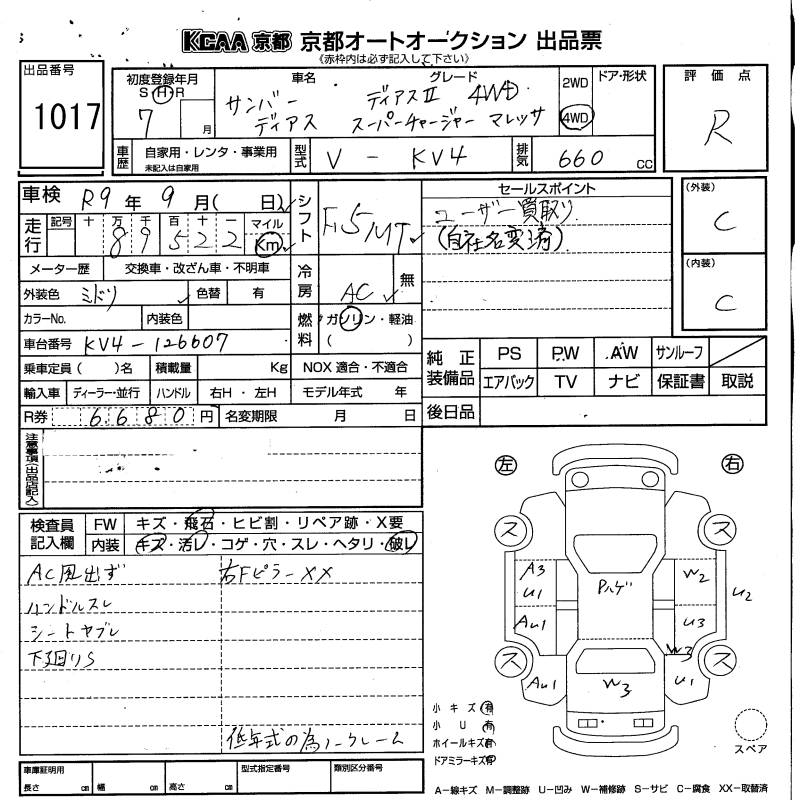 KCAA 京都 京都オートオークション 出品票
《赤枠内は必ず記入して下さい》
出品番号
1017
初度登録年月
S H R
7
月
車名
グレード
サンバー ディアスII 4WD
ディアス スーパーチャージャー マレッサ
2WD
4WD
ドア・形状
評価点
R
車歴
自家用・レンタ・事業用
未記入は自家用
型式
V - KV4
排気
660 CC
車検 R9 年 9 月( 日)
走行
記号 十 万 千 百 十 一 マイル
8 9 5 2 2 Km
シフト
F5/MT
セールスポイント
ユーザー買取り
(自社名変済)
(外装)
C
(内装)
C
メーター歴 交換車・改ざん車・不明車
冷房
AC
無
外装色 ミドリ 色替 有
カラーNo. 内装色
燃料
ガソリン・軽油
( )
車台番号 KV4-126607
乗車定員( )名 積載量 Kg NOX 適合・不適合
輸入車 ディーラー・並行 ハンドル 右H・左H モデル年式 年
R券 6680 円 名変期限 月 日
純正装備品
PS PW AW サンルーフ
エアバック TV ナビ 保証書 取説
後日品
注意事項(出品店記入)
検査員記入欄
FW キズ・飛石・ヒビ割・リペア跡・X要
内装 キズ・汚レ・コゲ・穴・スレ・ヘタリ・破レ
AC風出ず 右Fピラー××
ハンドルスレ
シートヤブレ
下廻りS
低年式の為ノークレーム
左 右
ス ス
A3
U1
Pハゲ
W2
U2
AU1
U3
ス W3 ス
AU1
W3
U1
小キズ 有
小U 有
ホイールキズ 有
ドアミラーキズ 有
スペア
車庫証明用
長さ cm 幅 cm 高さ cm
型式指定番号
類別区分番号
A−線キズ M−調整跡 U−凹み W−補修跡 S−サビ C−腐食 XX−取替済